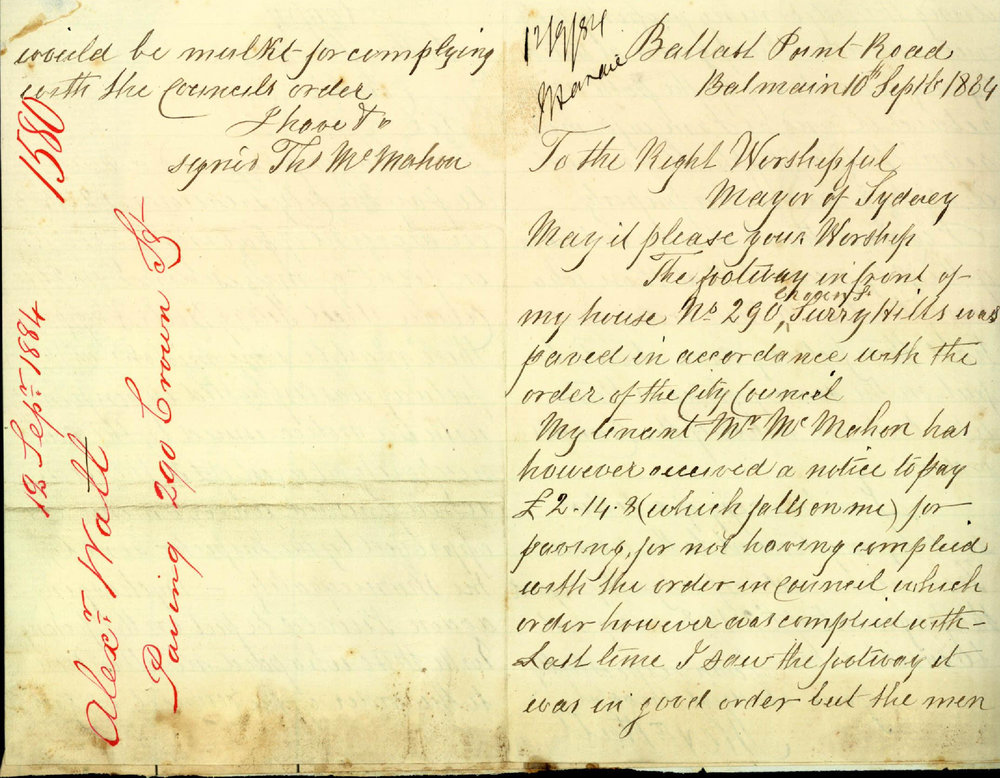 would be mulkt for complying
with the Councils order
I have &c
signed Thos McMahon
1580
12 Sepr. 1884
Alexr. Watt
Paving 290 Crown St
12/9/84
Ballast Point Road
Balmain 10th Septr 1884
To the Right Worshipful
Mayor of Sydney
May it please your Worship
The footway in front of
my house No 290, Crown St Surry Hills was
paved in accordance with the
order of the City Council
My tenant Mr. McMahon has
however received a notice to pay
£2.14.8 (which falls on me) for
paving, for not having complied
with the order in Council which
order however was complied with -
Last time I saw the footway it
was in good order but the men